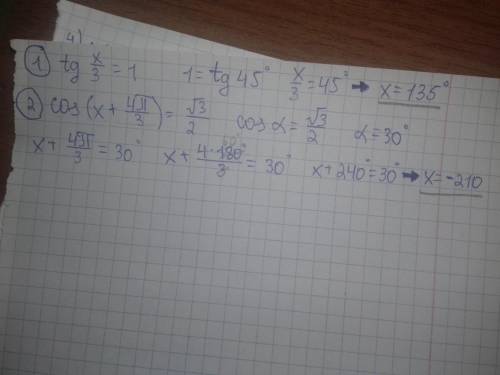 4)
① tg x/3 = 1 1 = tg 45° x/3 = 45° → x = 135°
② cos(x + 4π/3) = √3/2 cos α = √3/2 α = 30°
x + 4π/3 = 30° x + 4·180°/3 = 30° x + 240° = 30° → x = -210